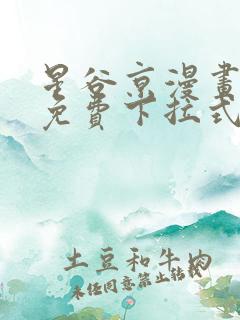 星谷京漫畫
免費下拉式
土豆和牛肉
未經同意禁止轉載